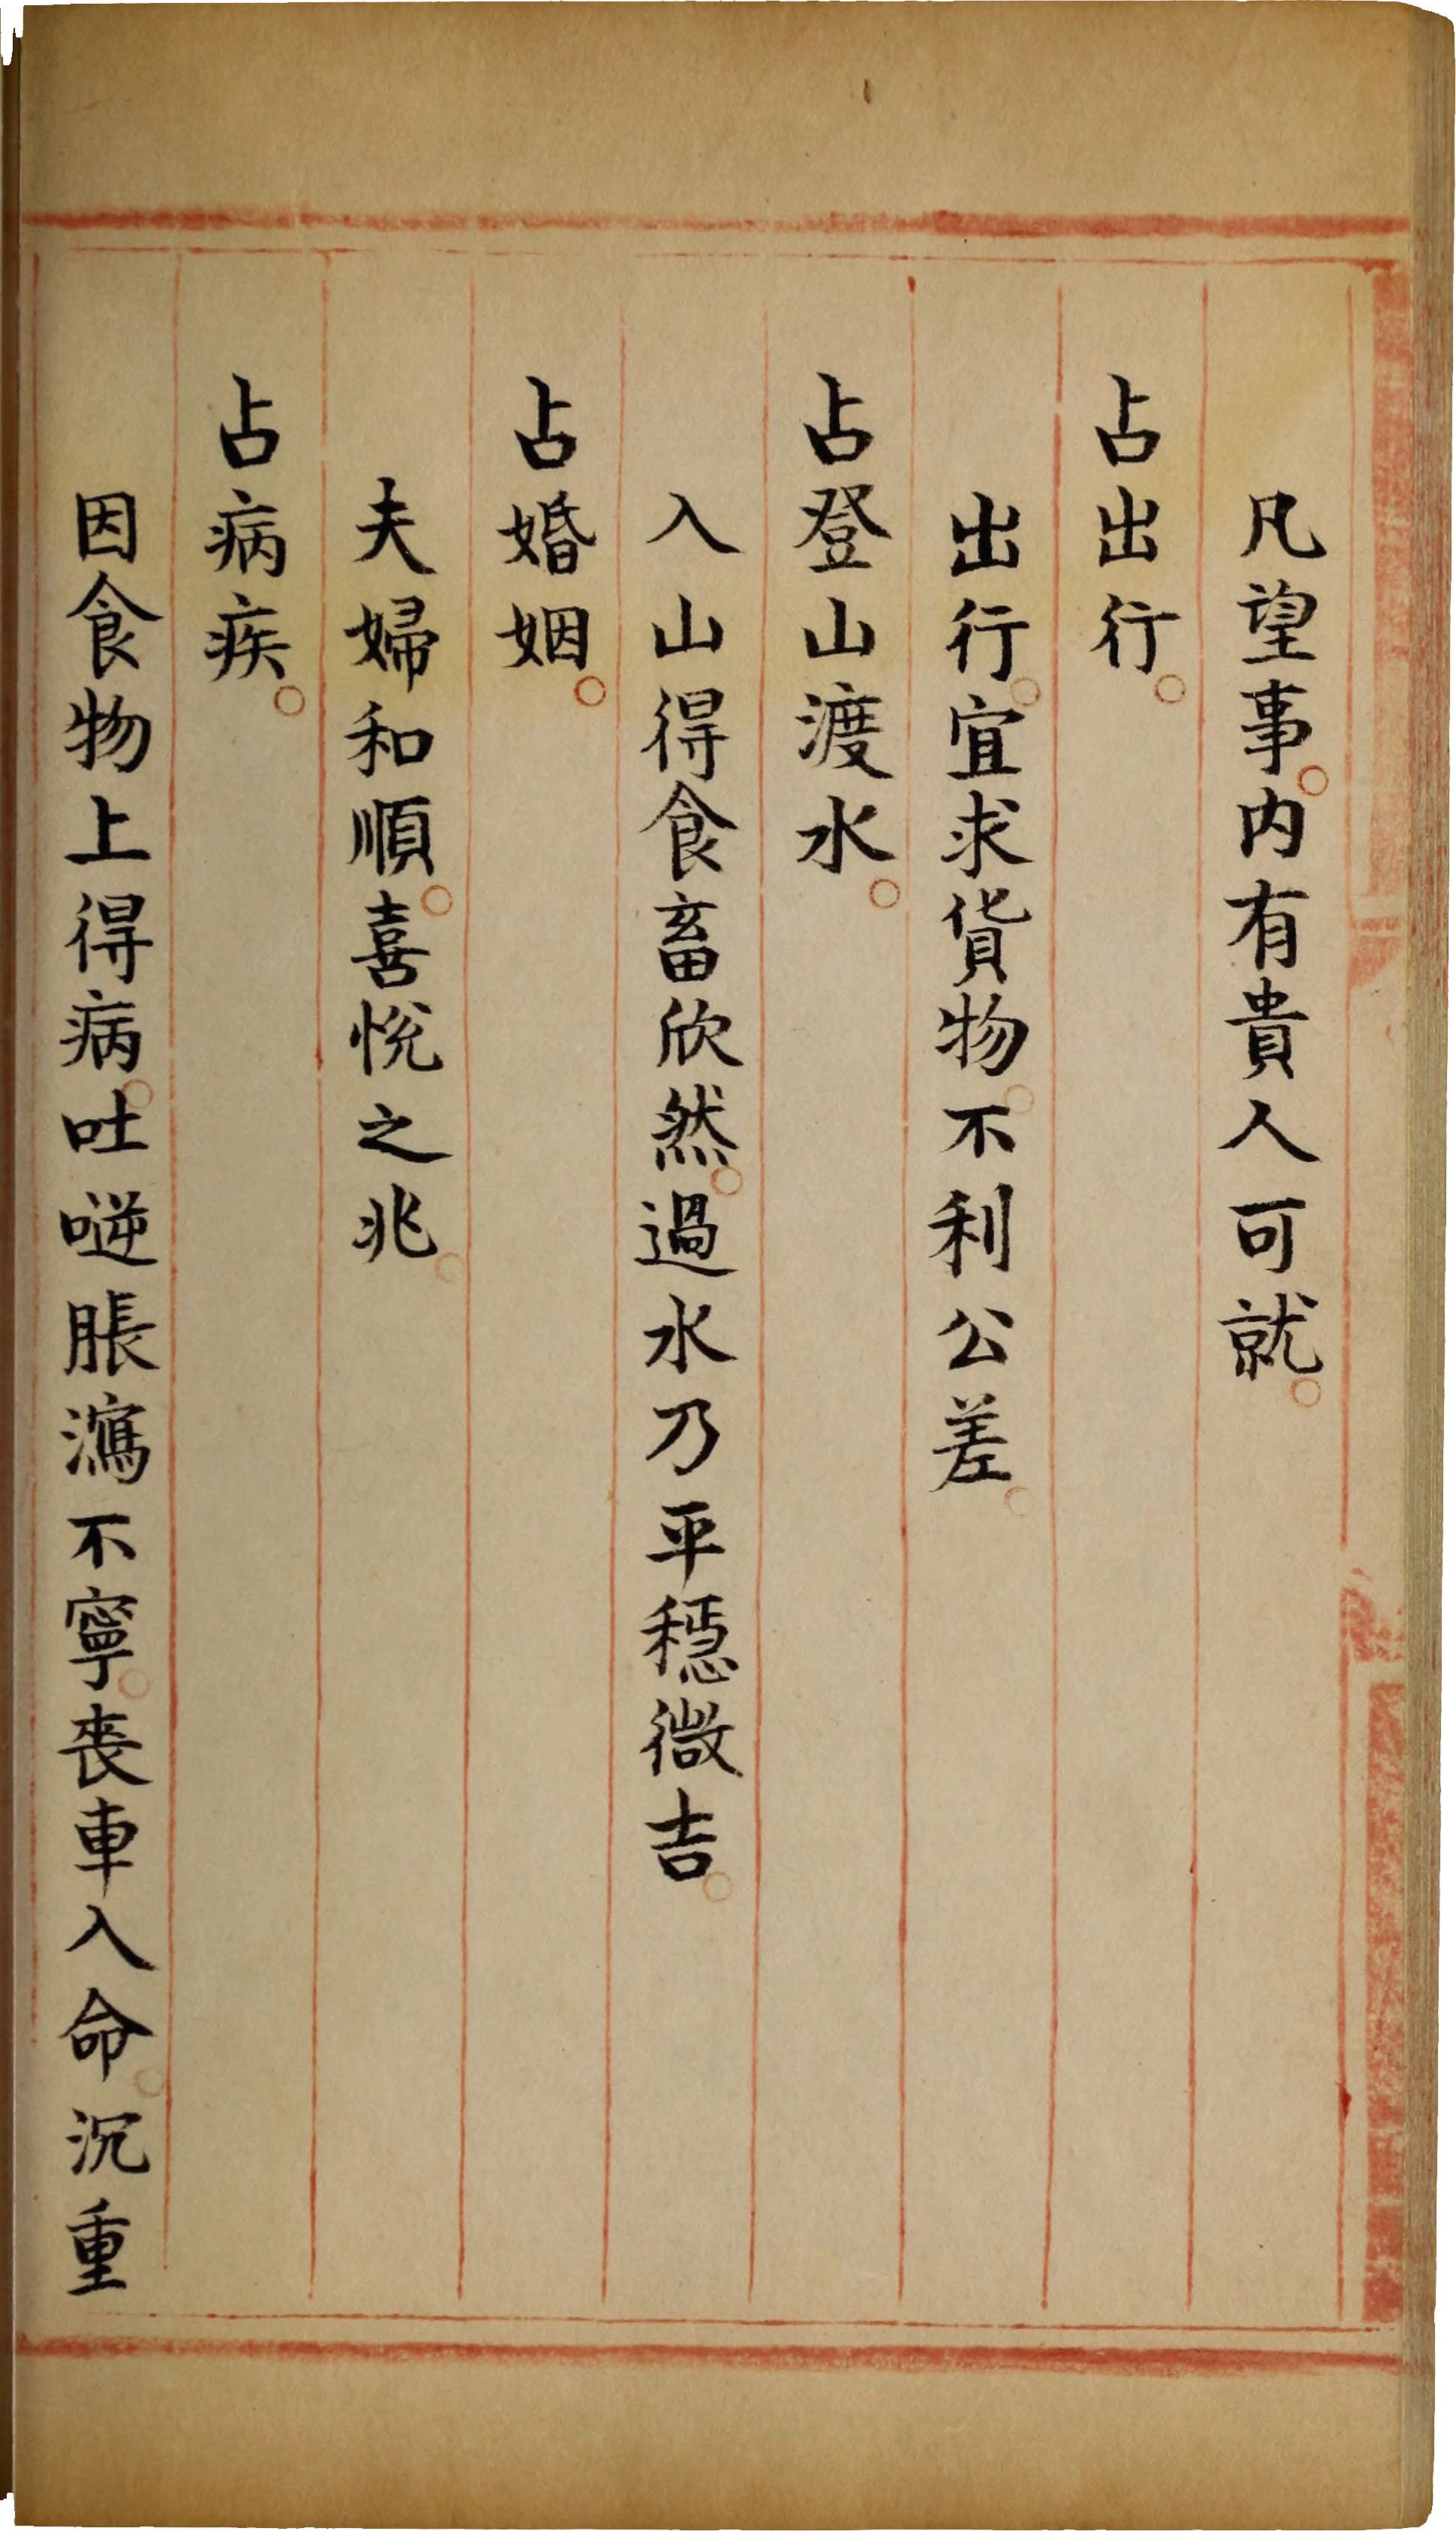 凡望事。内有貴人可就。
占出行。
出行。宜求貨物。不利公差。
占登山渡水。
入山得食畜欣然。過水乃平穩微吉。
占婚姻。
夫婦和順。喜悅之兆。
占病疾。
因食物上得病。吐噬脹瀉不寧。喪車入命。沉重